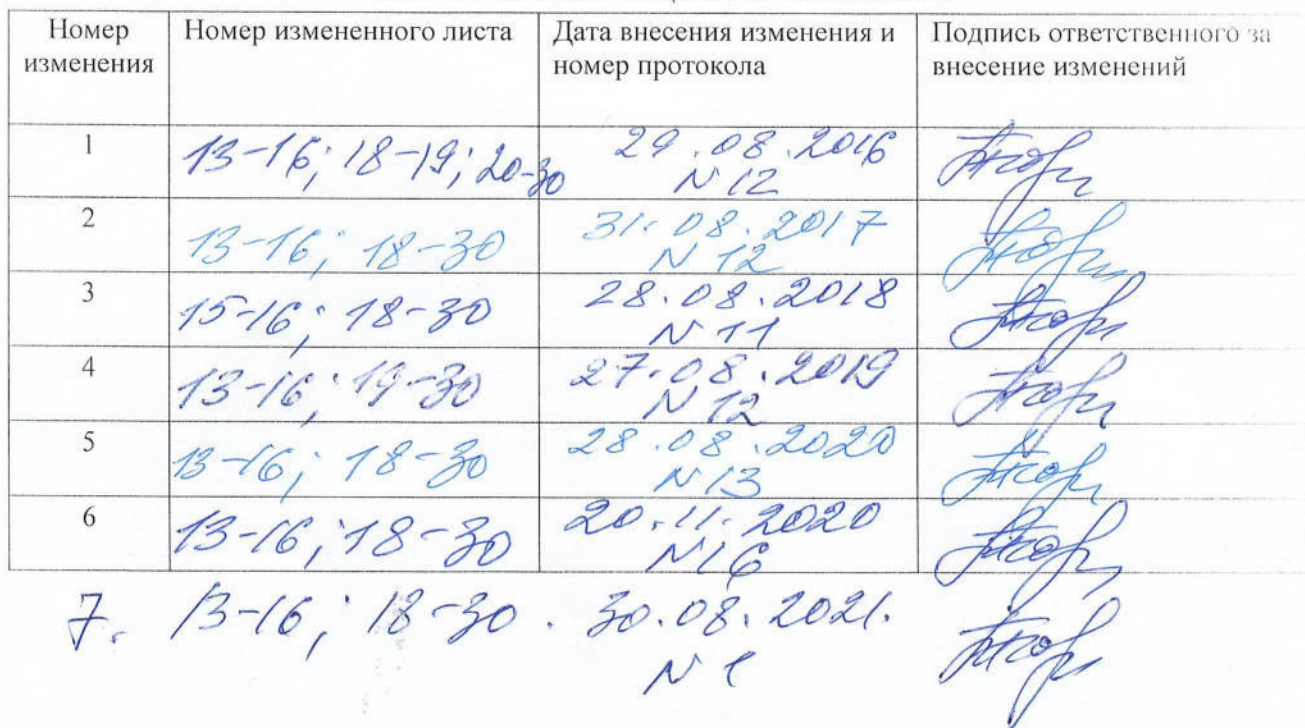 Номер изменения
Номер измененного листа
Дата внесения изменения и номер протокола
Подпись ответственного за внесение изменений
1
13-16; 18-19; 20-30
29.08.2016
N 12
2
13-16; 18-30
31.08.2017
N 12
3
15-16; 18-30
28.08.2018
N 11
4
13-16; 19-30
27.08.2019
N 12
5
13-16; 18-30
28.08.2020
N 13
6
13-16; 18-30
20.11.2020
N 16
7. 13-16; 18-30. 30.08.2021.
N 1